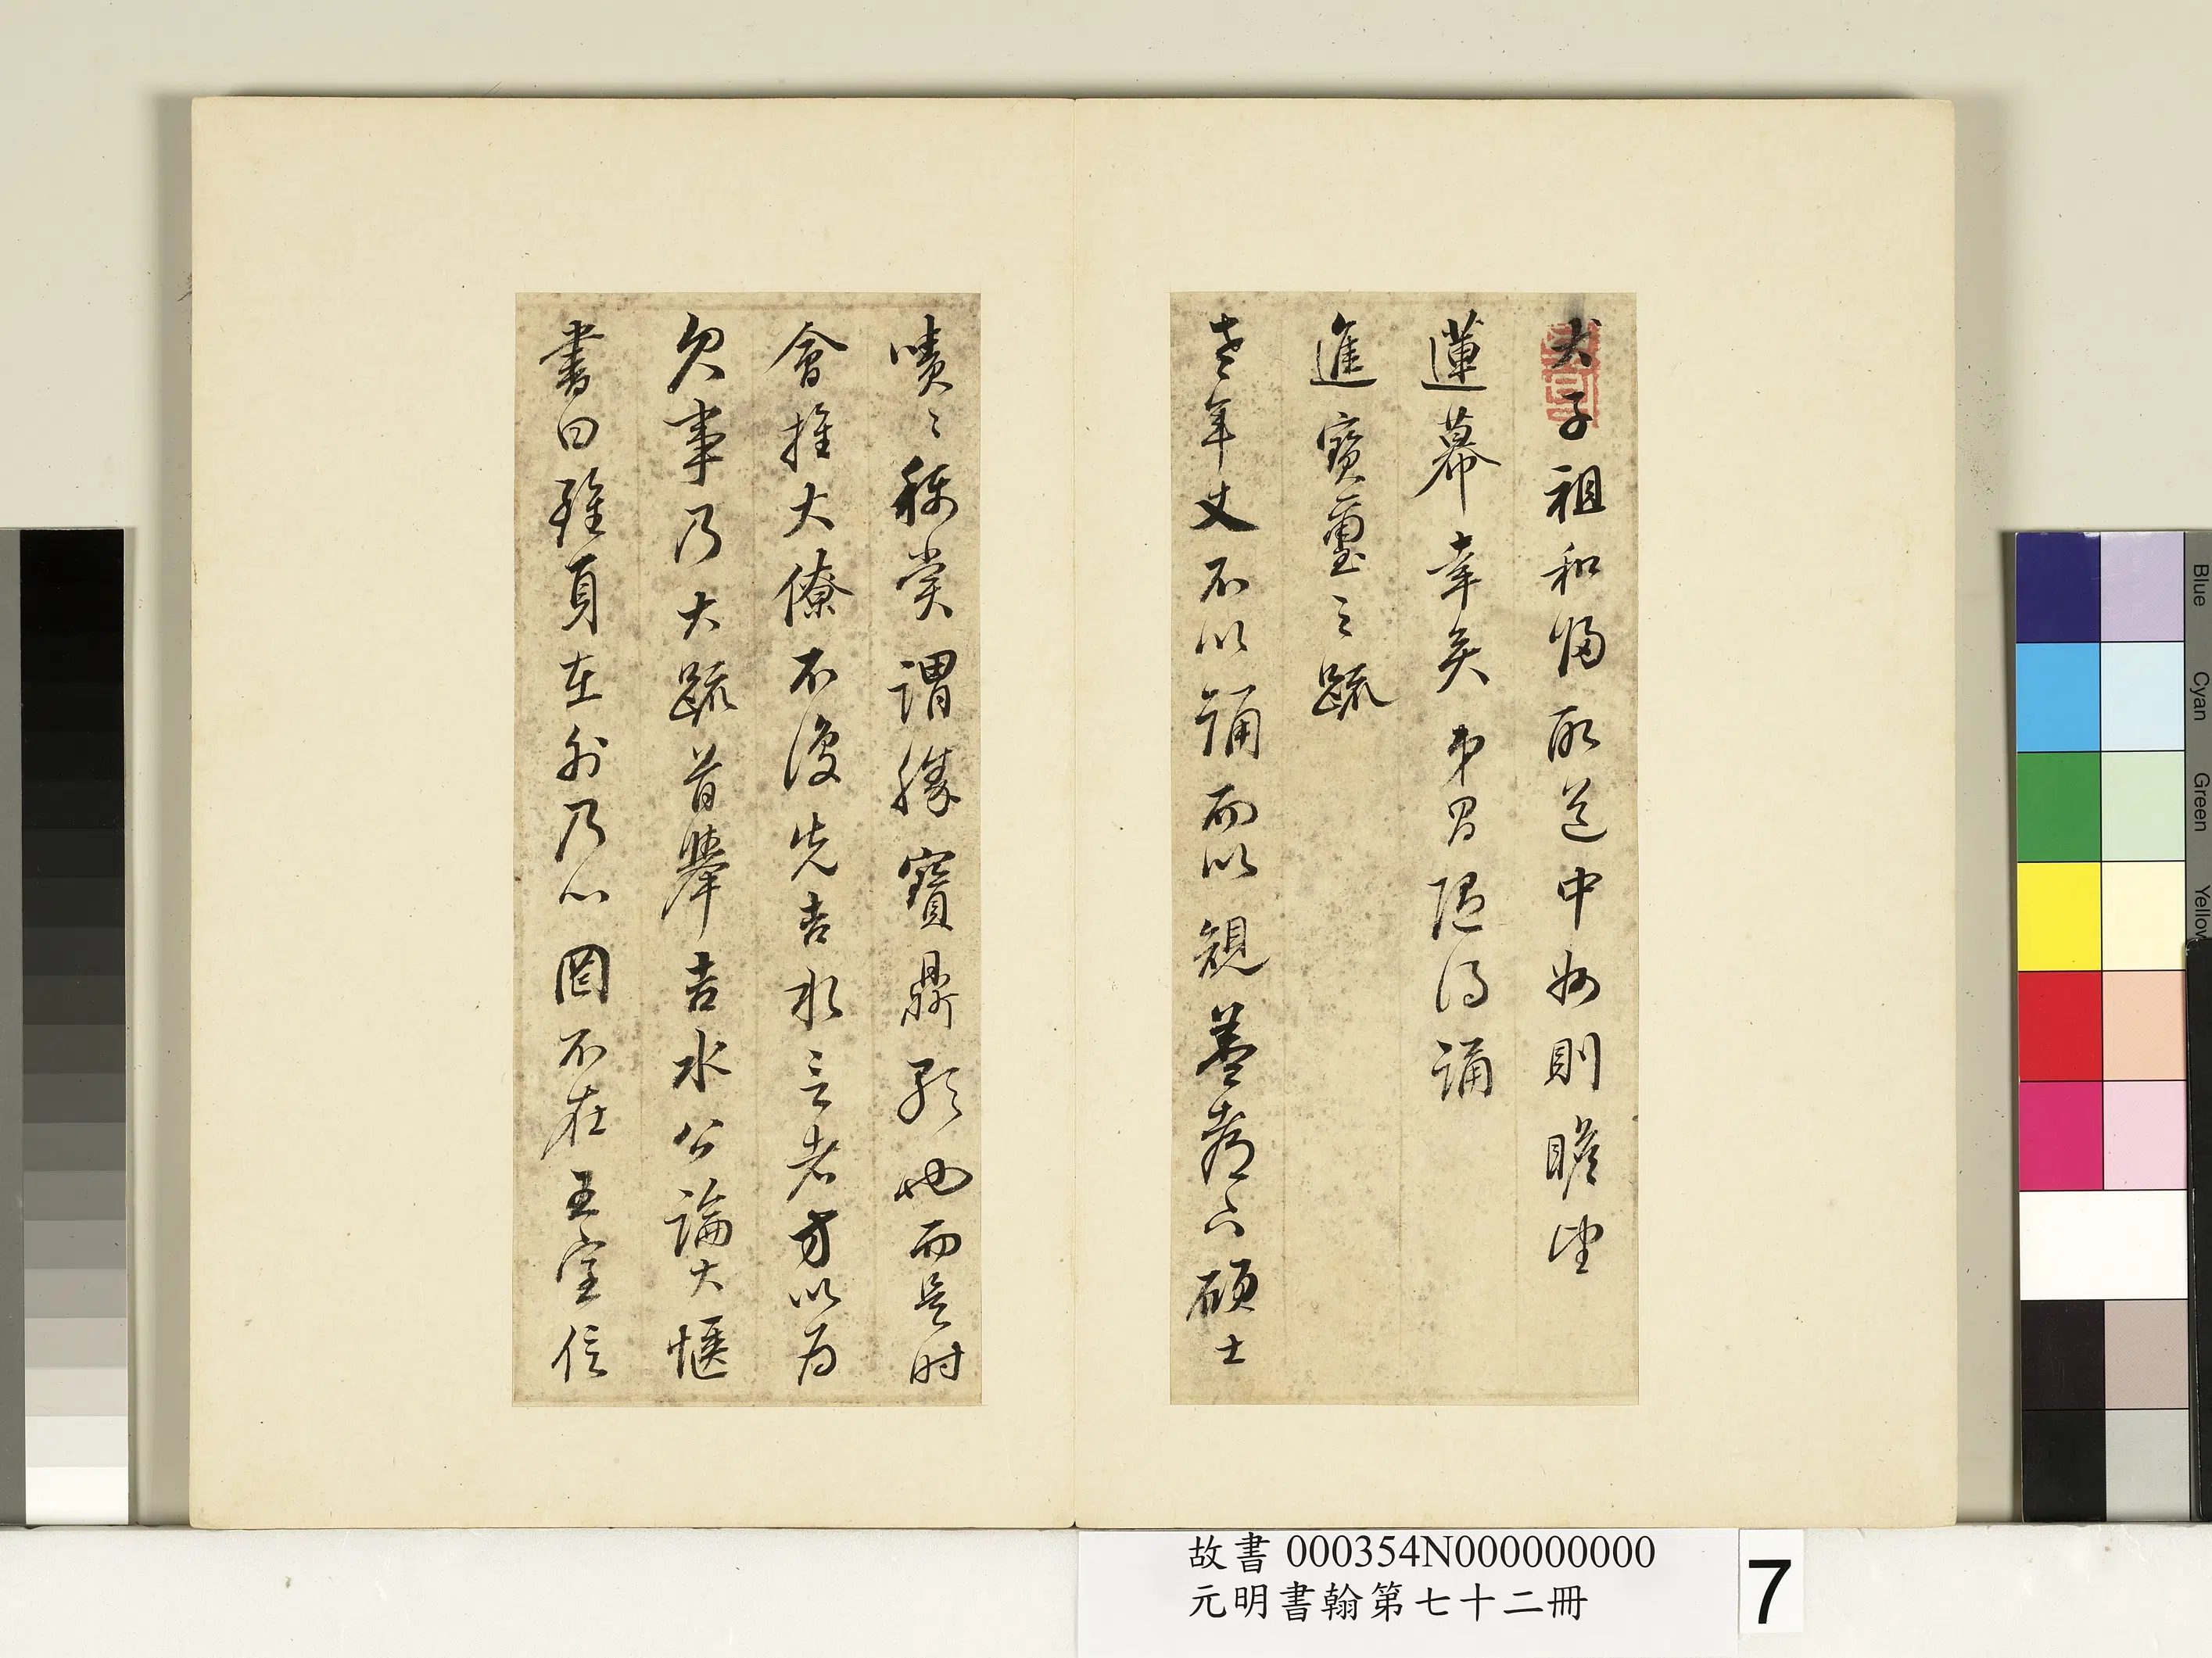 犬子祖和歸取道中州則瞻望
蓮幕幸矣弟習隱得誦
進寶璽之疏
老年丈不以誦而以規蓋都下碩士
嘖嘖稱賞謂勝寶鼎歌也而是時
會推大僚不復先吉水言者方以為
欠事乃大疏首舉吉水公論大愜
書曰雖身在外乃心罔不在王室信
故書 000354N000000000
元明書翰第七十二冊
7
Blue
Cyan
Green
Yellow